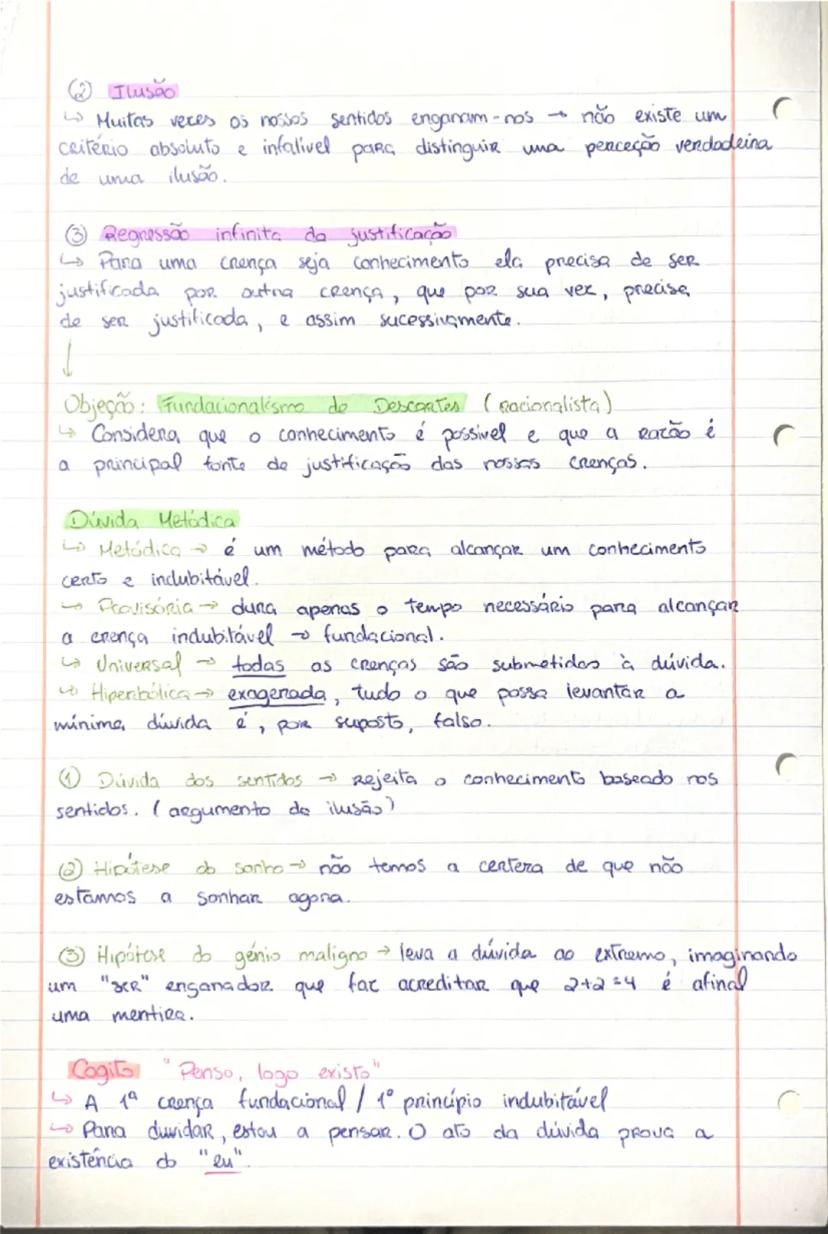 ② Ilusão
↳ Muitas vezes os nossos sentidos enganam-nos → não existe um
critério absoluto e infalível para distinguir uma perceção verdadeira
de uma ilusão.
③ Regressão infinita da justificação
↳ Para uma crença seja conhecimento ela precisa de ser
justificada por outra crença, que por sua vez, precisa
de ser justificada, e assim sucessivamente.
↓
Objeção: Fundacionalismo de Descartes (racionalista)
↳ Considera que o conhecimento é possível e que a razão é
a principal fonte de justificação das nossas crenças.
Dúvida Metódica
↳ Metódica → é um método para alcançar um conhecimento
certo e indubitável.
↳ Provisória → dura apenas o tempo necessário para alcançar
a crença indubitável → fundacional.
↳ Universal → todas as crenças são submetidas à dúvida.
↳ Hiperbólica → exagerada, tudo o que possa levantar a
mínima dúvida é, por suposto, falso.
① Dúvida dos sentidos → Rejeita o conhecimento baseado nos
sentidos. (argumento da ilusão)
② Hipótese do sonho → não temos a certeza de que não
estamos a sonhar agora.
③ Hipótese do génio maligno → leva a dúvida ao extremo, imaginando
um "ser" enganador que faz acreditar que 2+2=4 é afinal
uma mentira.
Cogito "Penso, logo existo"
↳ A 1ª crença fundacional / 1º princípio indubitável
↳ Para duvidar, estou a pensar. O ato da dúvida prova a
existência do "eu".